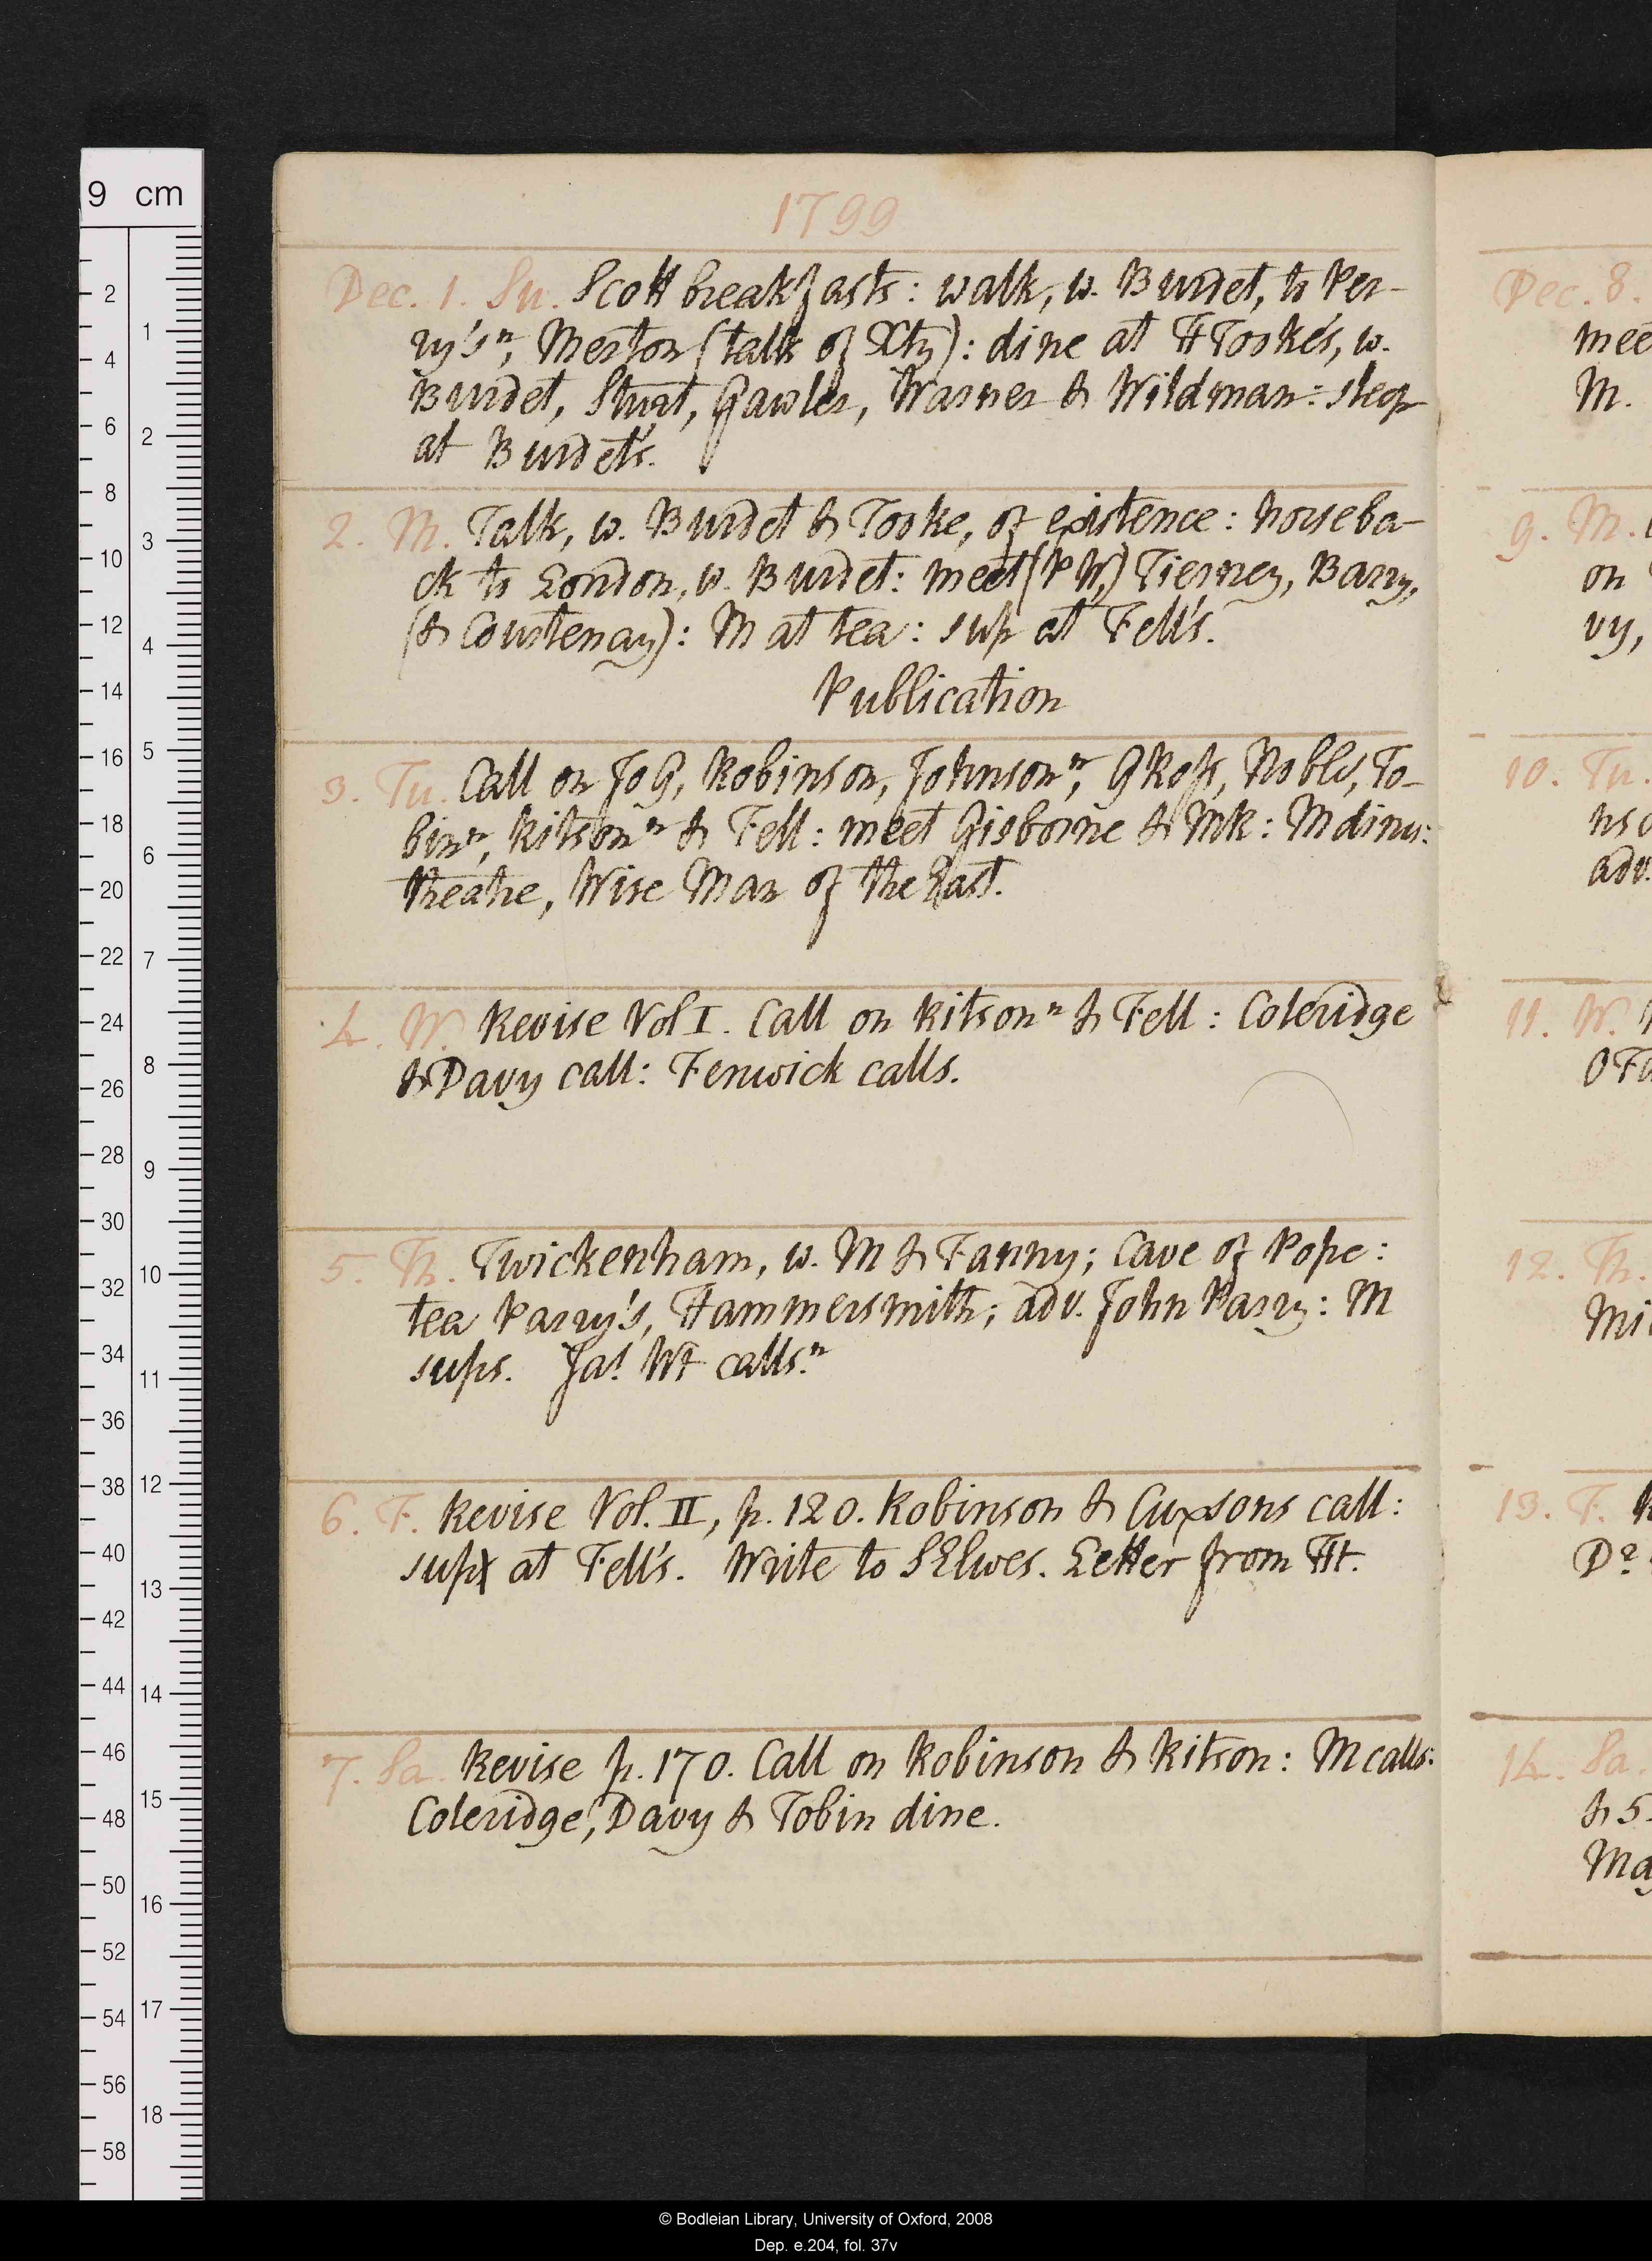 1799
Dec. 1. Su. Scott breakfasts: walk, w. Burdet, to Per-
ry's n, Merton (talk of Xty): dine at HTooke's, w.
Burdet, Sturt, Gawler, Warner & Wildman: sleep
at Burdet's.
2. M. Talk, w. Burdet & Tooke, of existence: horseba-
ck to London, w. Burdet: meet (P W,) Tierney, Barry,
(& Courtenay): M at tea: sup at Fell's.
Publication
3. Tu. Call on JoG, Robinson, Johnson n, GRobs, Nobles, To-
bin n, Ritson n & Fell: meet Gisborne & Mk: M dines:
theatre, Wise Man of the East.
4. W. Revise Vol I. Call on Ritson n & Fell: Coleridge
& Davy call: Fenwick calls.
5. Th. Twickenham, w. M & Fanny; Cave of Pope:
tea Parry's, Hammersmith; adv. John Parry: M
sups. Jas. Wt calls. n
6. F. Revise Vol. II, p. 120. Robinson & Cuxsons call:
sup at Fell's. Write to SElwes. Letter from Ht.
7. Sa. Revise p. 170. Call on Robinson & Ritson: M calls:
Coleridge, Davy & Tobin dine.
Dec. 8.
mee
M.
9. M.
on
vy,
10. Tu.
nso
adv.
11. W.
OFa
12. Th.
Mi
13. F. R
Do
14. Sa.
& 5.
Ma
9 cm
2
4
6
8
10
12
14
16
18
20
22
24
26
28
30
32
34
36
38
40
42
44
46
48
50
52
54
56
58
1
2
3
4
5
6
7
8
9
10
11
12
13
14
15
16
17
18
© Bodleian Library, University of Oxford, 2008
Dep. e.204, fol. 37v